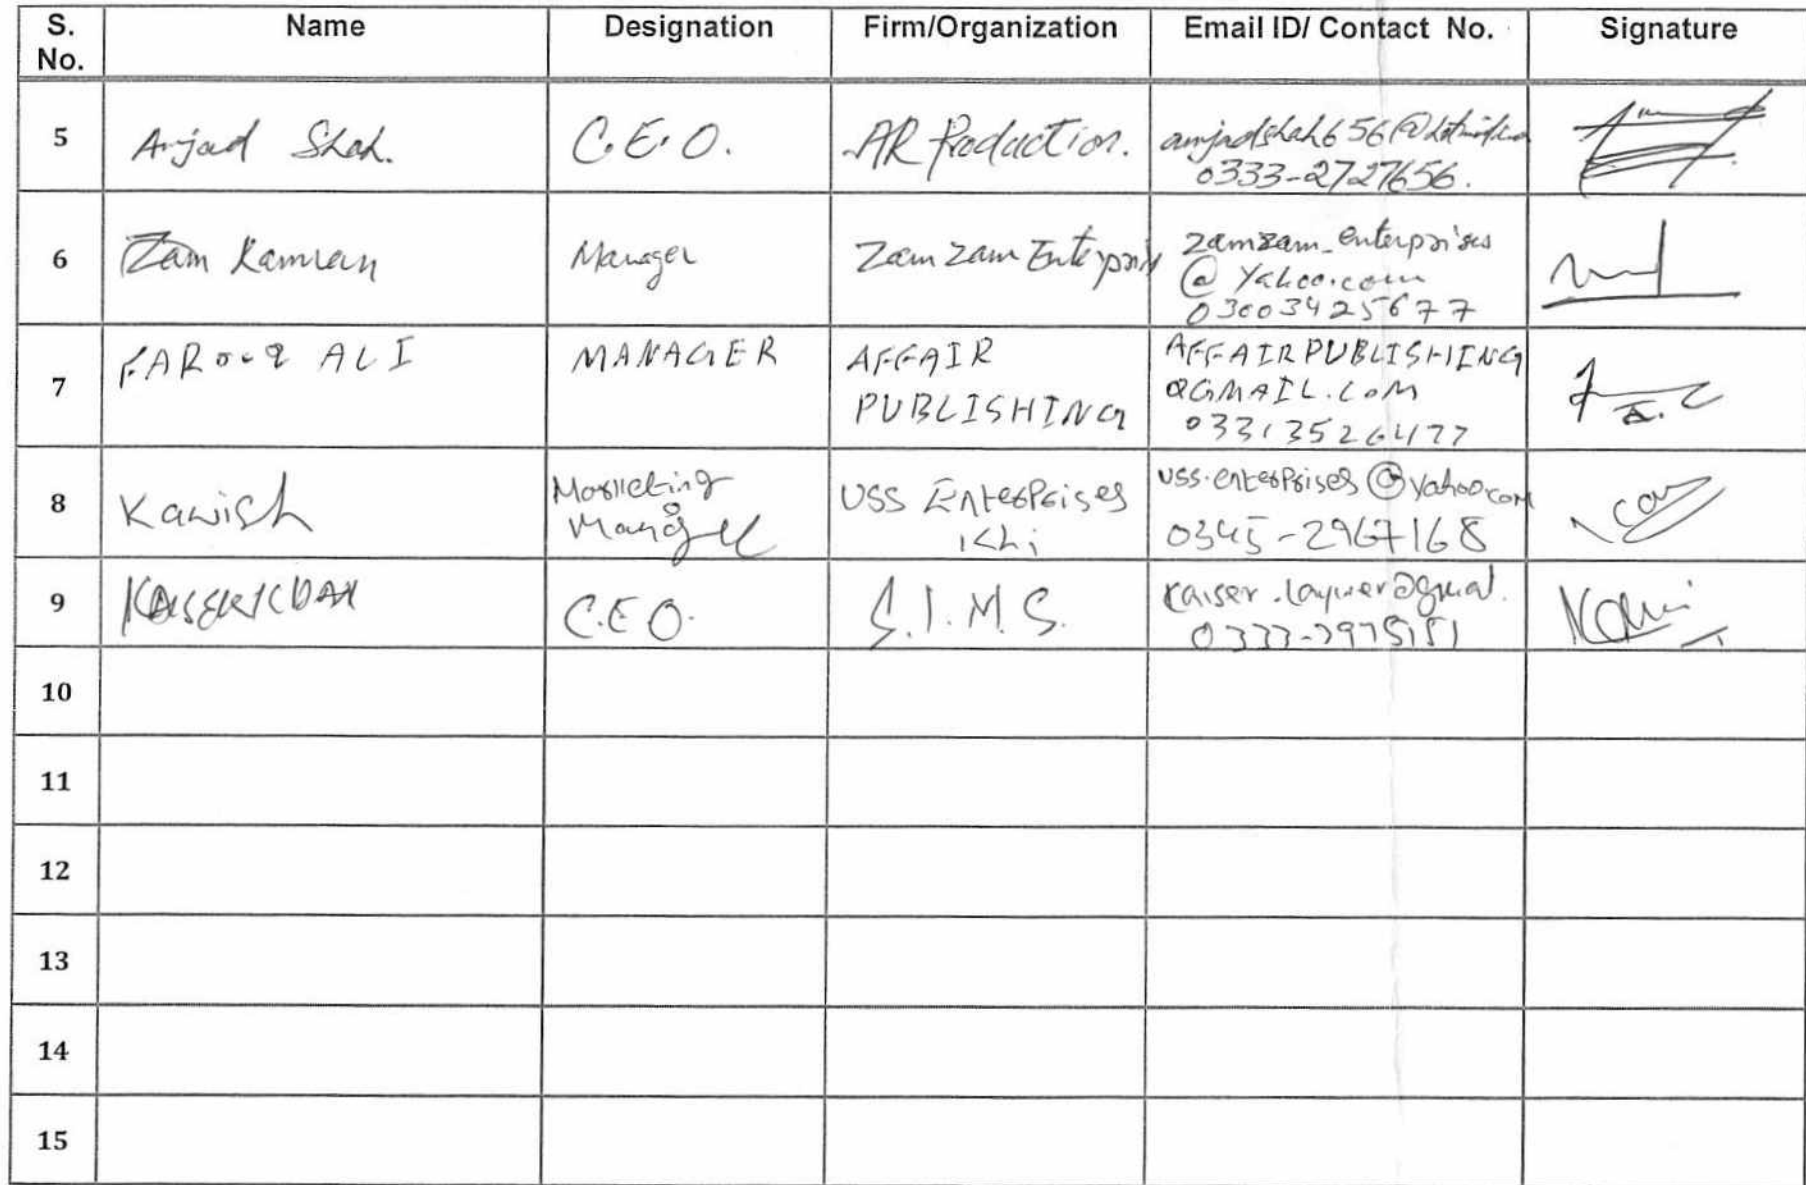 S. No. Name Designation Firm/Organization Email ID/ Contact No. Signature
5 Amjad Shah. C.E.O. AR Production. amjadshah656@hotmail.com
0333-2727656.
6 Zam Kamran Manager Zam Zam Enterprises zamzam_enterprises
@ Yahoo.com
03003425677
7 FAROOQ ALI MANAGER AFFAIR AFFAIRPUBLISHING
PUBLISHING @GMAIL.COM
03313526477
8 Kawish Marketing USS Enterprises uss.enterprises@yahoo.com
Manager Khi 0345-2967168
9 C.E.O. S.I.M.S.
10
11
12
13
14
15